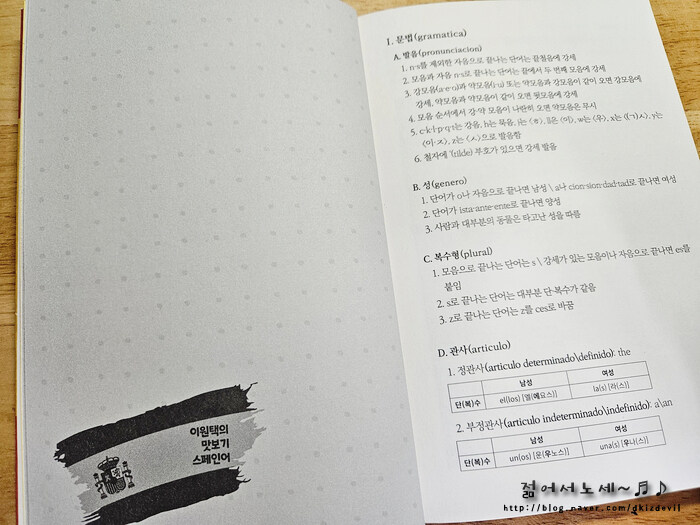 이원택의
맛보기
스페인어
I. 문법(gramatica)
A. 발음(pronunciacion)
1. n·s를 제외한 자음으로 끝나는 단어는 끝절음에 강세
2. 모음과 자음 n·s로 끝나는 단어는 끝에서 두 번째 모음에 강세
3. 강모음(a·e·o)과 약모음(i·u) 또는 약모음과 강모음이 같이 오면 강모음에
강세, 약모음과 약모음이 같이 오면 뒷모음에 강세
4. 모음 순서에서 강·약 모음이 나란히 오면 약모음은 무시
5. c·k·l·p·q·t는 강음, h는 묵음, j는 〈ㅎ〉, ll은 〈이〉, w는 〈우〉, x는 〈(ㄱ)ㅅ〉, y는
〈이·ㅈ〉, z는 〈ㅅ〉으로 발음함
6. 철자에 ´(tilde) 부호가 있으면 강세 발음
B. 성(genero)
1. 단어가 o나 자음으로 끝나면 남성 \ a나 cion·sion·dad·tad로 끝나면 여성
2. 단어가 ista·ante·ente로 끝나면 양성
3. 사람과 대부분의 동물은 타고난 성을 따름
C. 복수형(plural)
1. 모음으로 끝나는 단어는 s \ 강세가 있는 모음이나 자음으로 끝나면 es를
붙임
2. s로 끝나는 단어는 대부분 단·복수가 같음
3. z로 끝나는 단어는 z를 ces로 바꿈
D. 관사(articulo)
1. 정관사(articulo determinado\definido): the
남성 여성
단(복)수 el(los) [엘(예요스)] la(s) [라(스)]
2. 부정관사(articulo indeterminado\indefinido): a\an
남성 여성
단(복)수 un(os) [운(우노스)] una(s) [우나(스)]
젊어서노세~♬♪
http://blog.naver.com/gklzdevil